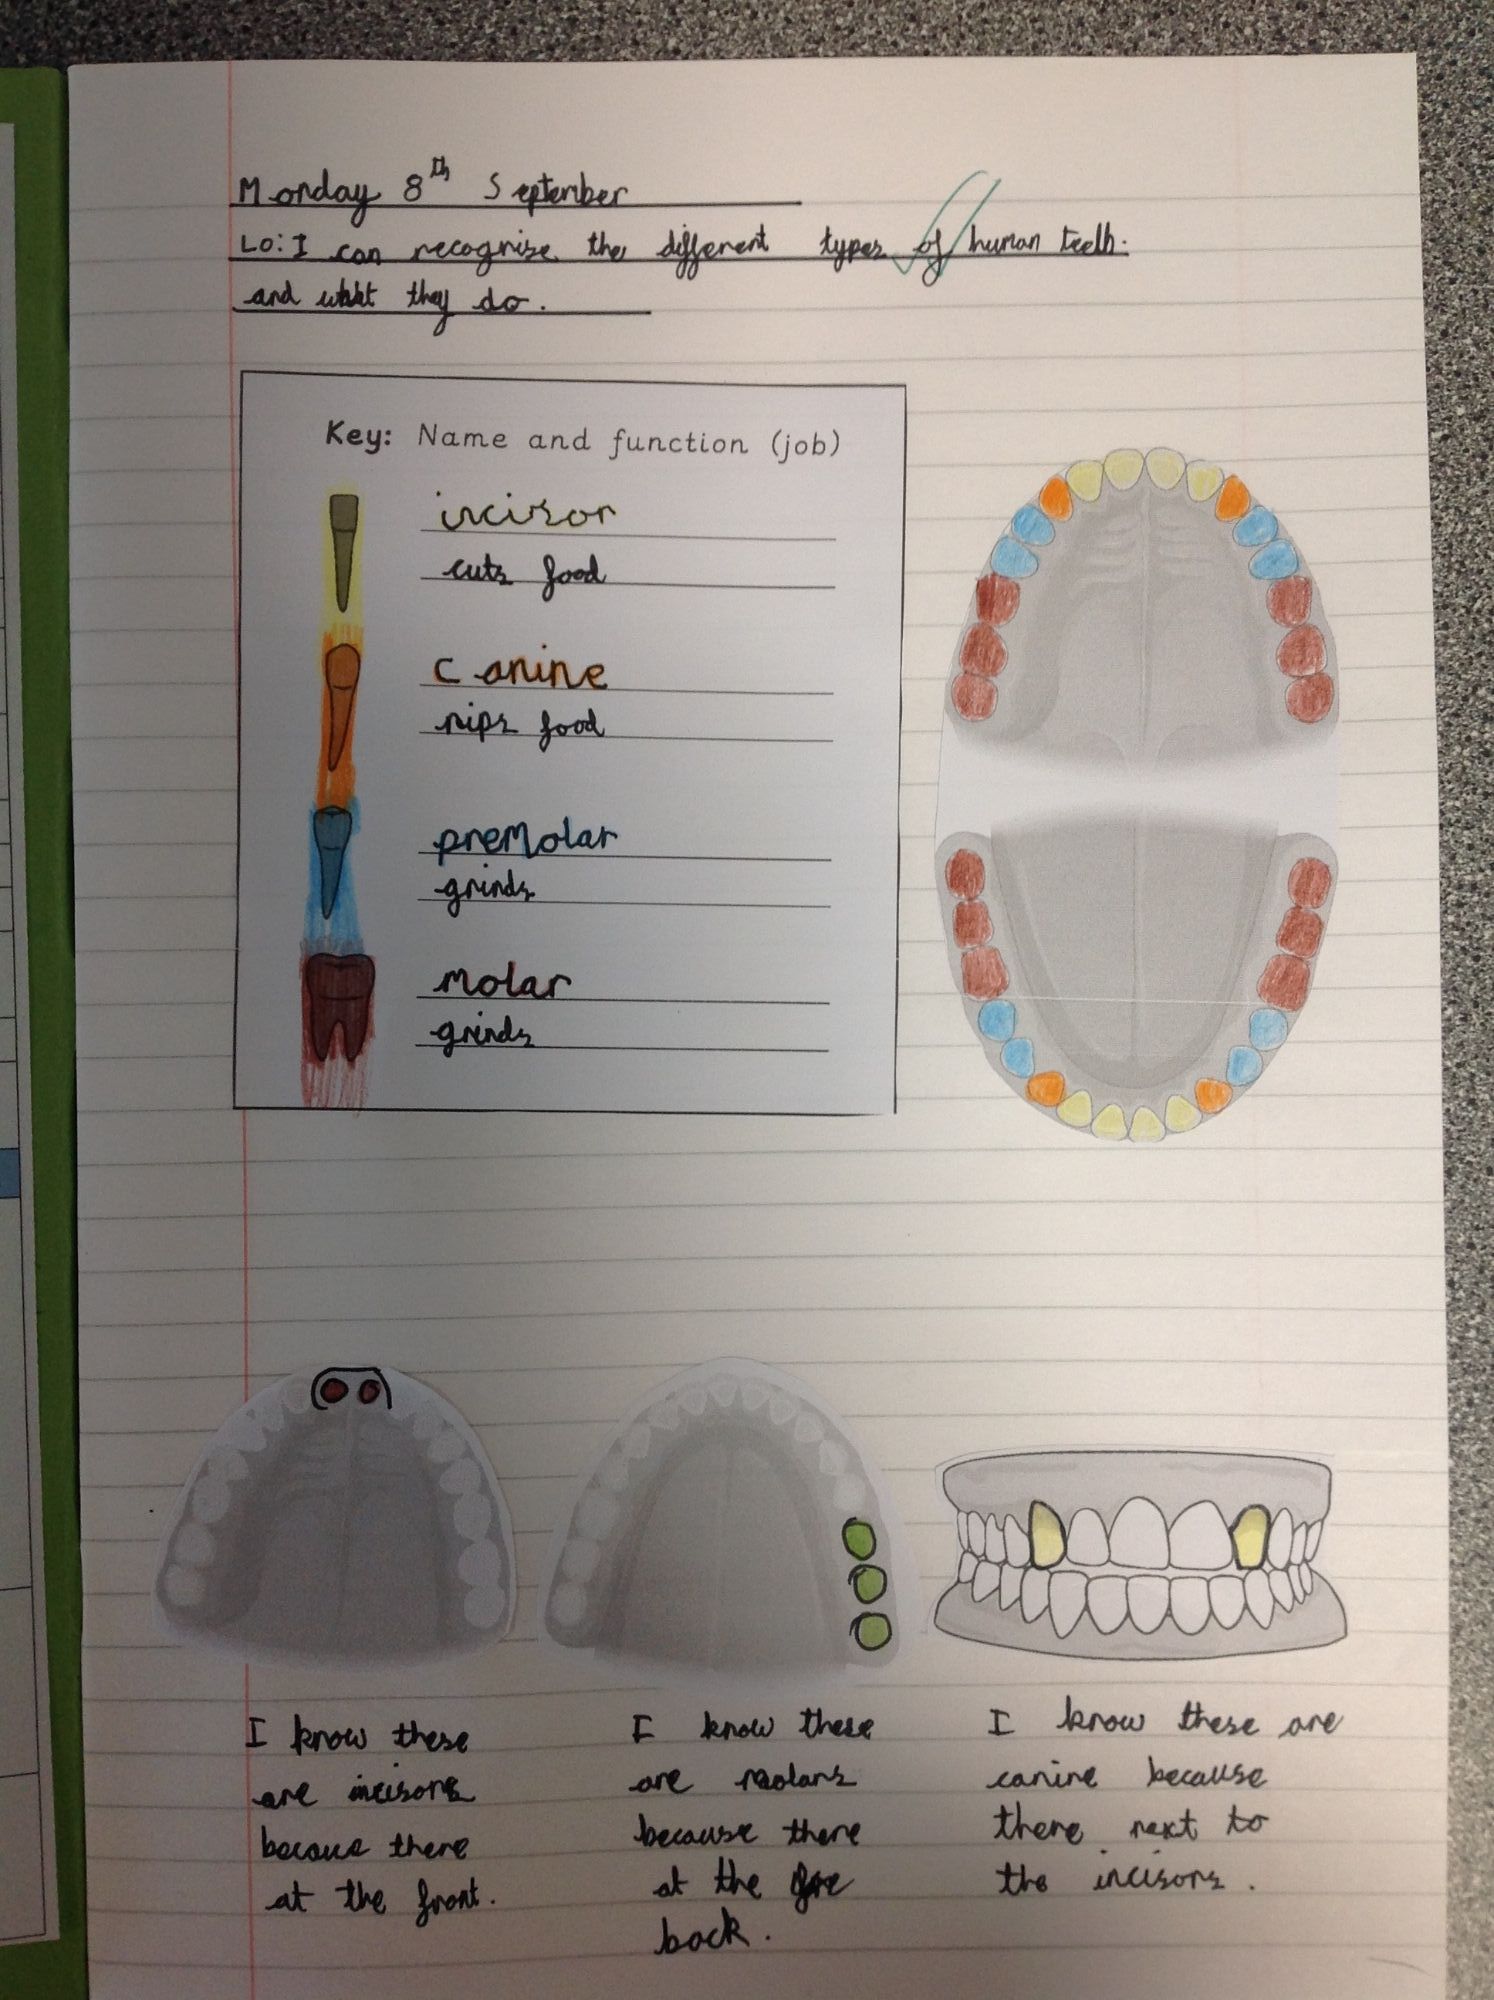 Monday 8th September
LO: I can recognise the different types of human teeth.
and what they do.
Key: Name and function (job)
incisor
cuts food
Canine
rips food
preMolar
grinds
Molar
grinds
I know these
are incisors
becaus there
at the front.
I know these
are molars
because there
at the
back.
I know these are
canine because
there next to
the incisors.